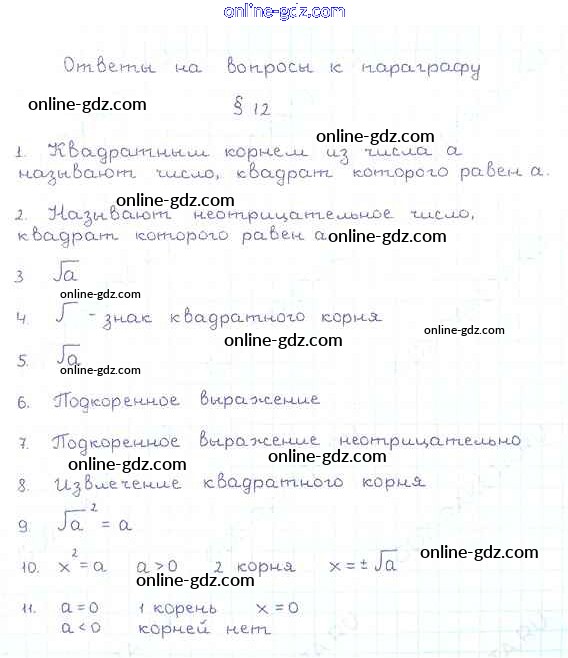 online-gdz.com
Ответы на вопросы к параграфу
online-gdz.com
§ 12
online-gdz.com
1. Квадратным корнем из числа a
называют число, квадрат которого равен a.
online-gdz.com
2. Называют неотрицательное число,
квадрат которого равен a online-gdz.com
3 √a
online-gdz.com
4. √ - знак квадратного корня
online-gdz.com
online-gdz.com
5. √a
online-gdz.com
6. Подкоренное выражение
7. Подкоренное выражение неотрицательно
online-gdz.com online-gdz.com
8. Извлечение квадратного корня
9 √a² = a
10. x² = a a > 0 2 корня x = ± √a online-gdz.com
online-gdz.com
11. a = 0 1 корень x = 0
a < 0 корней нет